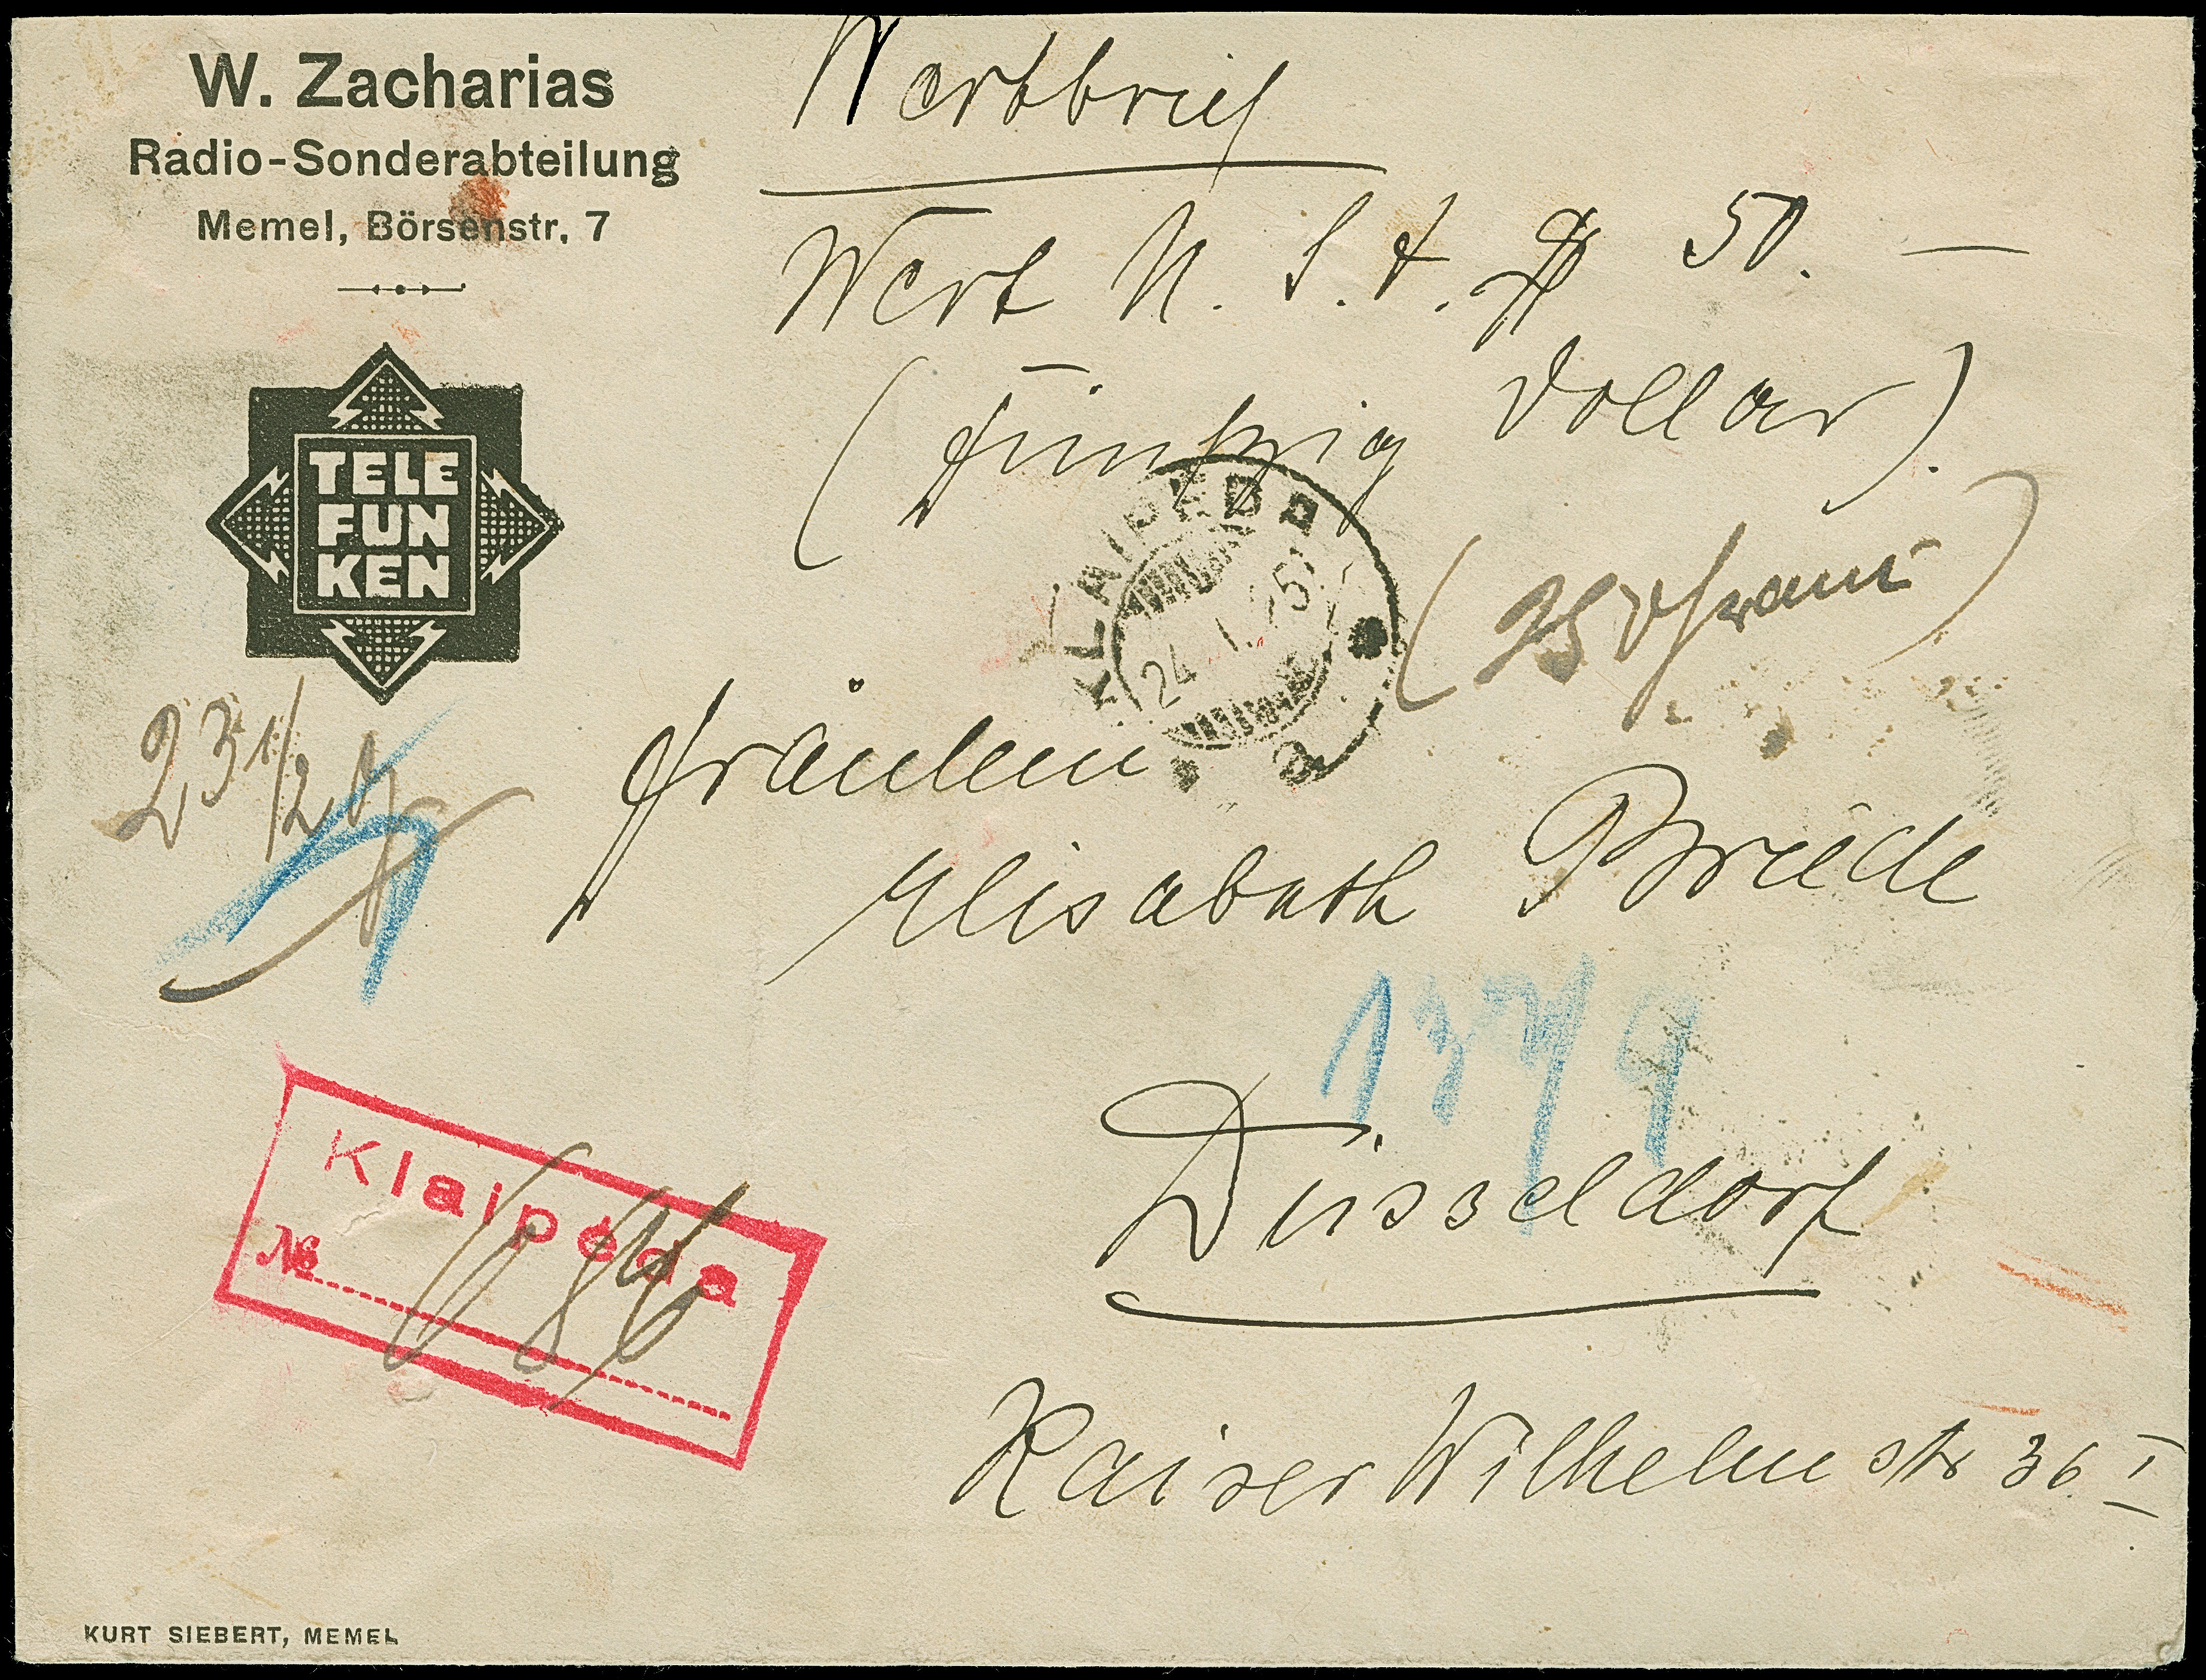 W. Zacharias
Radio-Sonderabteilung
Memel, Börsenstr. 7
TELE
FUN
KEN
Wertbrief
Wert U. S. A. $ 50. —
(Fünfzig Dollar).
KLAIPEDA
24. 1. 25
a
23 1/2 g
Fräulein
Elisabeth
Düsseldorf
Kaiser Wilhelm str 36 I
Klaipėda
№
KURT SIEBERT, MEMEL